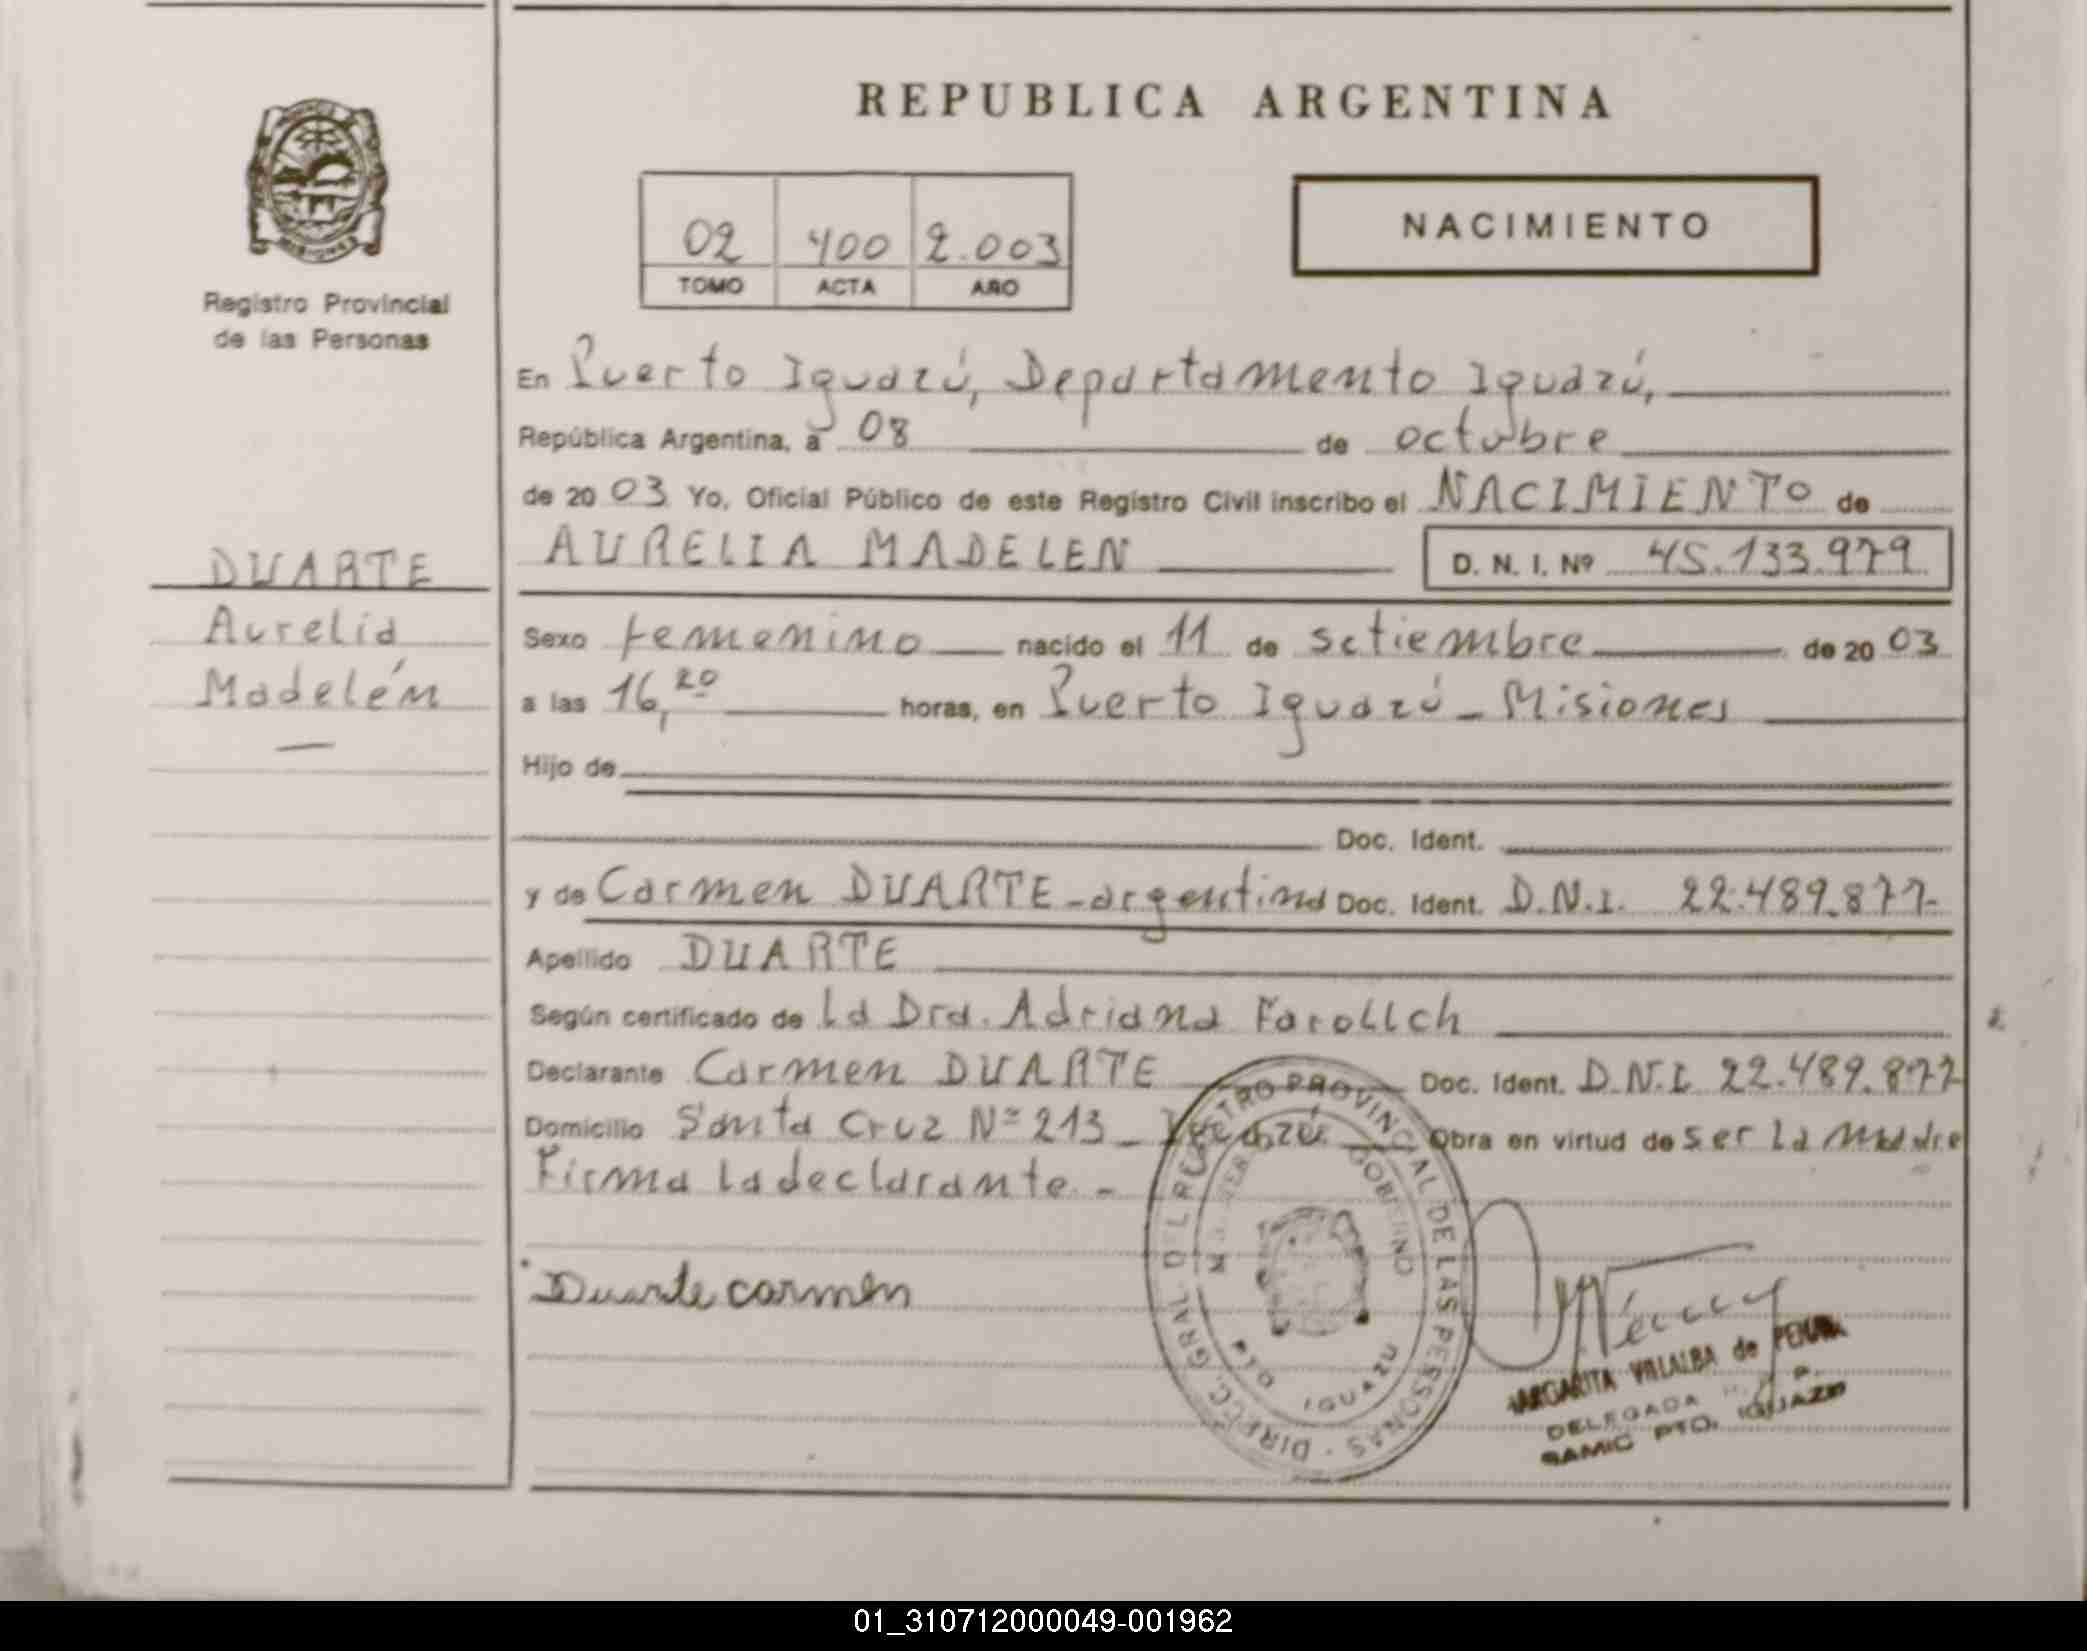 REPUBLICA ARGENTINA
NACIMIENTO
02 400 2.003
TOMO ACTA AÑO
Registro Provincial
de las Personas
En Puerto Iguazú, Departamento Iguazú,
República Argentina, a 08 de octubre
de 20 03 Yo, Oficial Público de este Registro Civil inscribo el NACIMIENTO de
AURELIA MADELEN D. N. I. Nº 45.133.979
DUARTE
Aurelia
Madelén
Sexo femenino nacido el 11 de setiembre de 20 03
a las 16,20 horas, en Puerto Iguazú - Misiones
Hijo de
Doc. Ident.
y de Carmen DUARTE - argentina Doc. Ident. D.N.I. 22.489.877-
Apellido DUARTE
Según certificado de la Dra. Adriana
Declarante Carmen DUARTE Doc. Ident. D.N.I. 22.489.877
Domicilio Santa Cruz Nº 213 - Iguazú Obra en virtud de ser la madre
Firma la declarante. -
Duarte carmen
DIRECC. GRAL. DEL REGISTRO PROVINCIAL DE LAS PERSONAS
GOBIERNO
PTO IGUAZU
MARGARITA VILLALBA de
DELEGADA
SAMIC PTO. IGUAZU
01_310712000049-001962